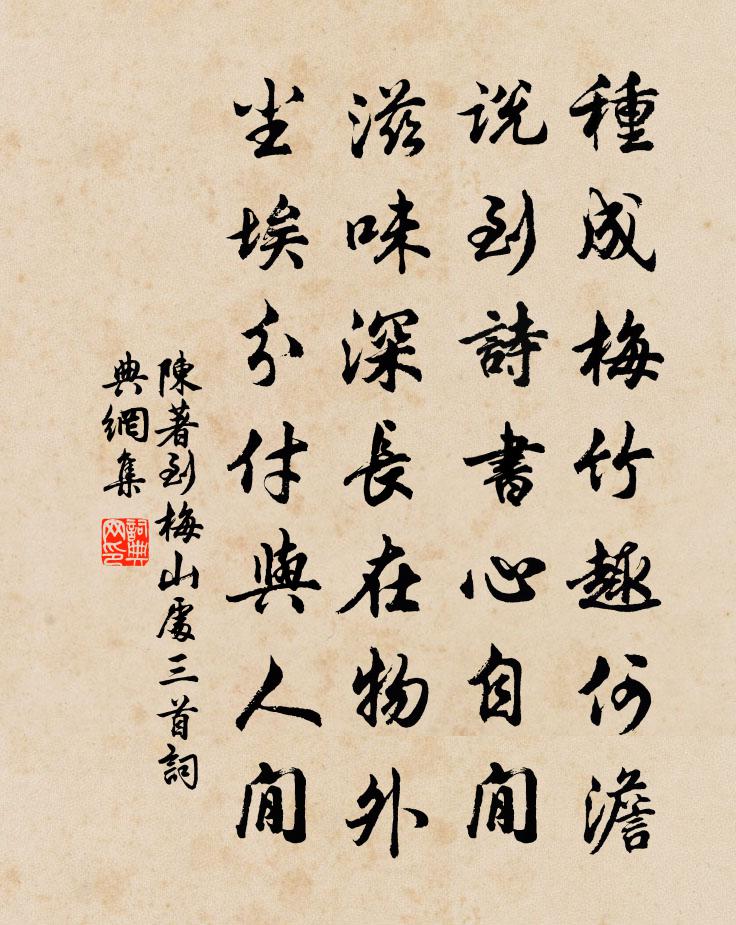 種成梅竹趣何澹
説到詩書心自閒
滋味深長在物外
尘埃分付與人閒
陳著到梅山處三首詞
典網集
詞典網印